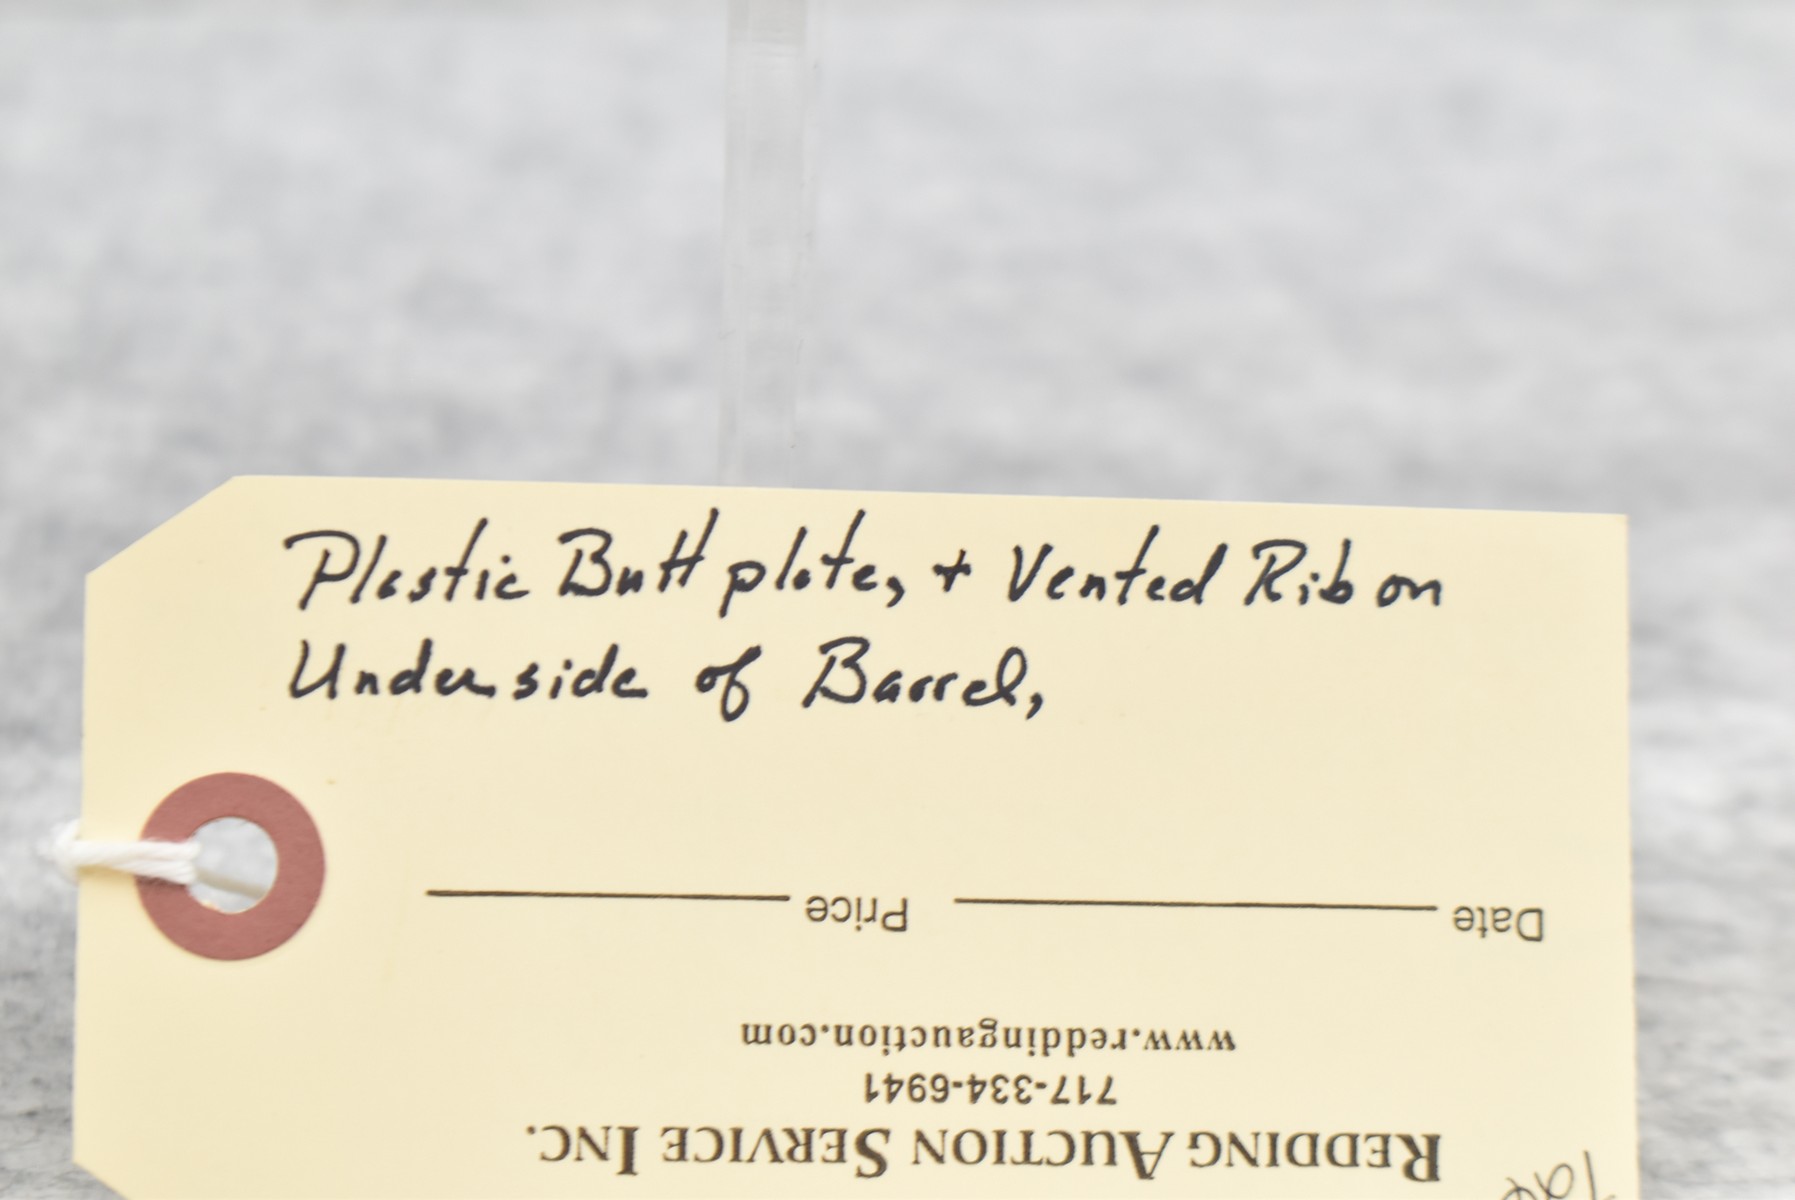 Plastic Buttplate, + Vented Rib on
Underside of Barrel,
REDDING AUCTION SERVICE INC.
717-334-6941
www.reddingauction.com
Date Price